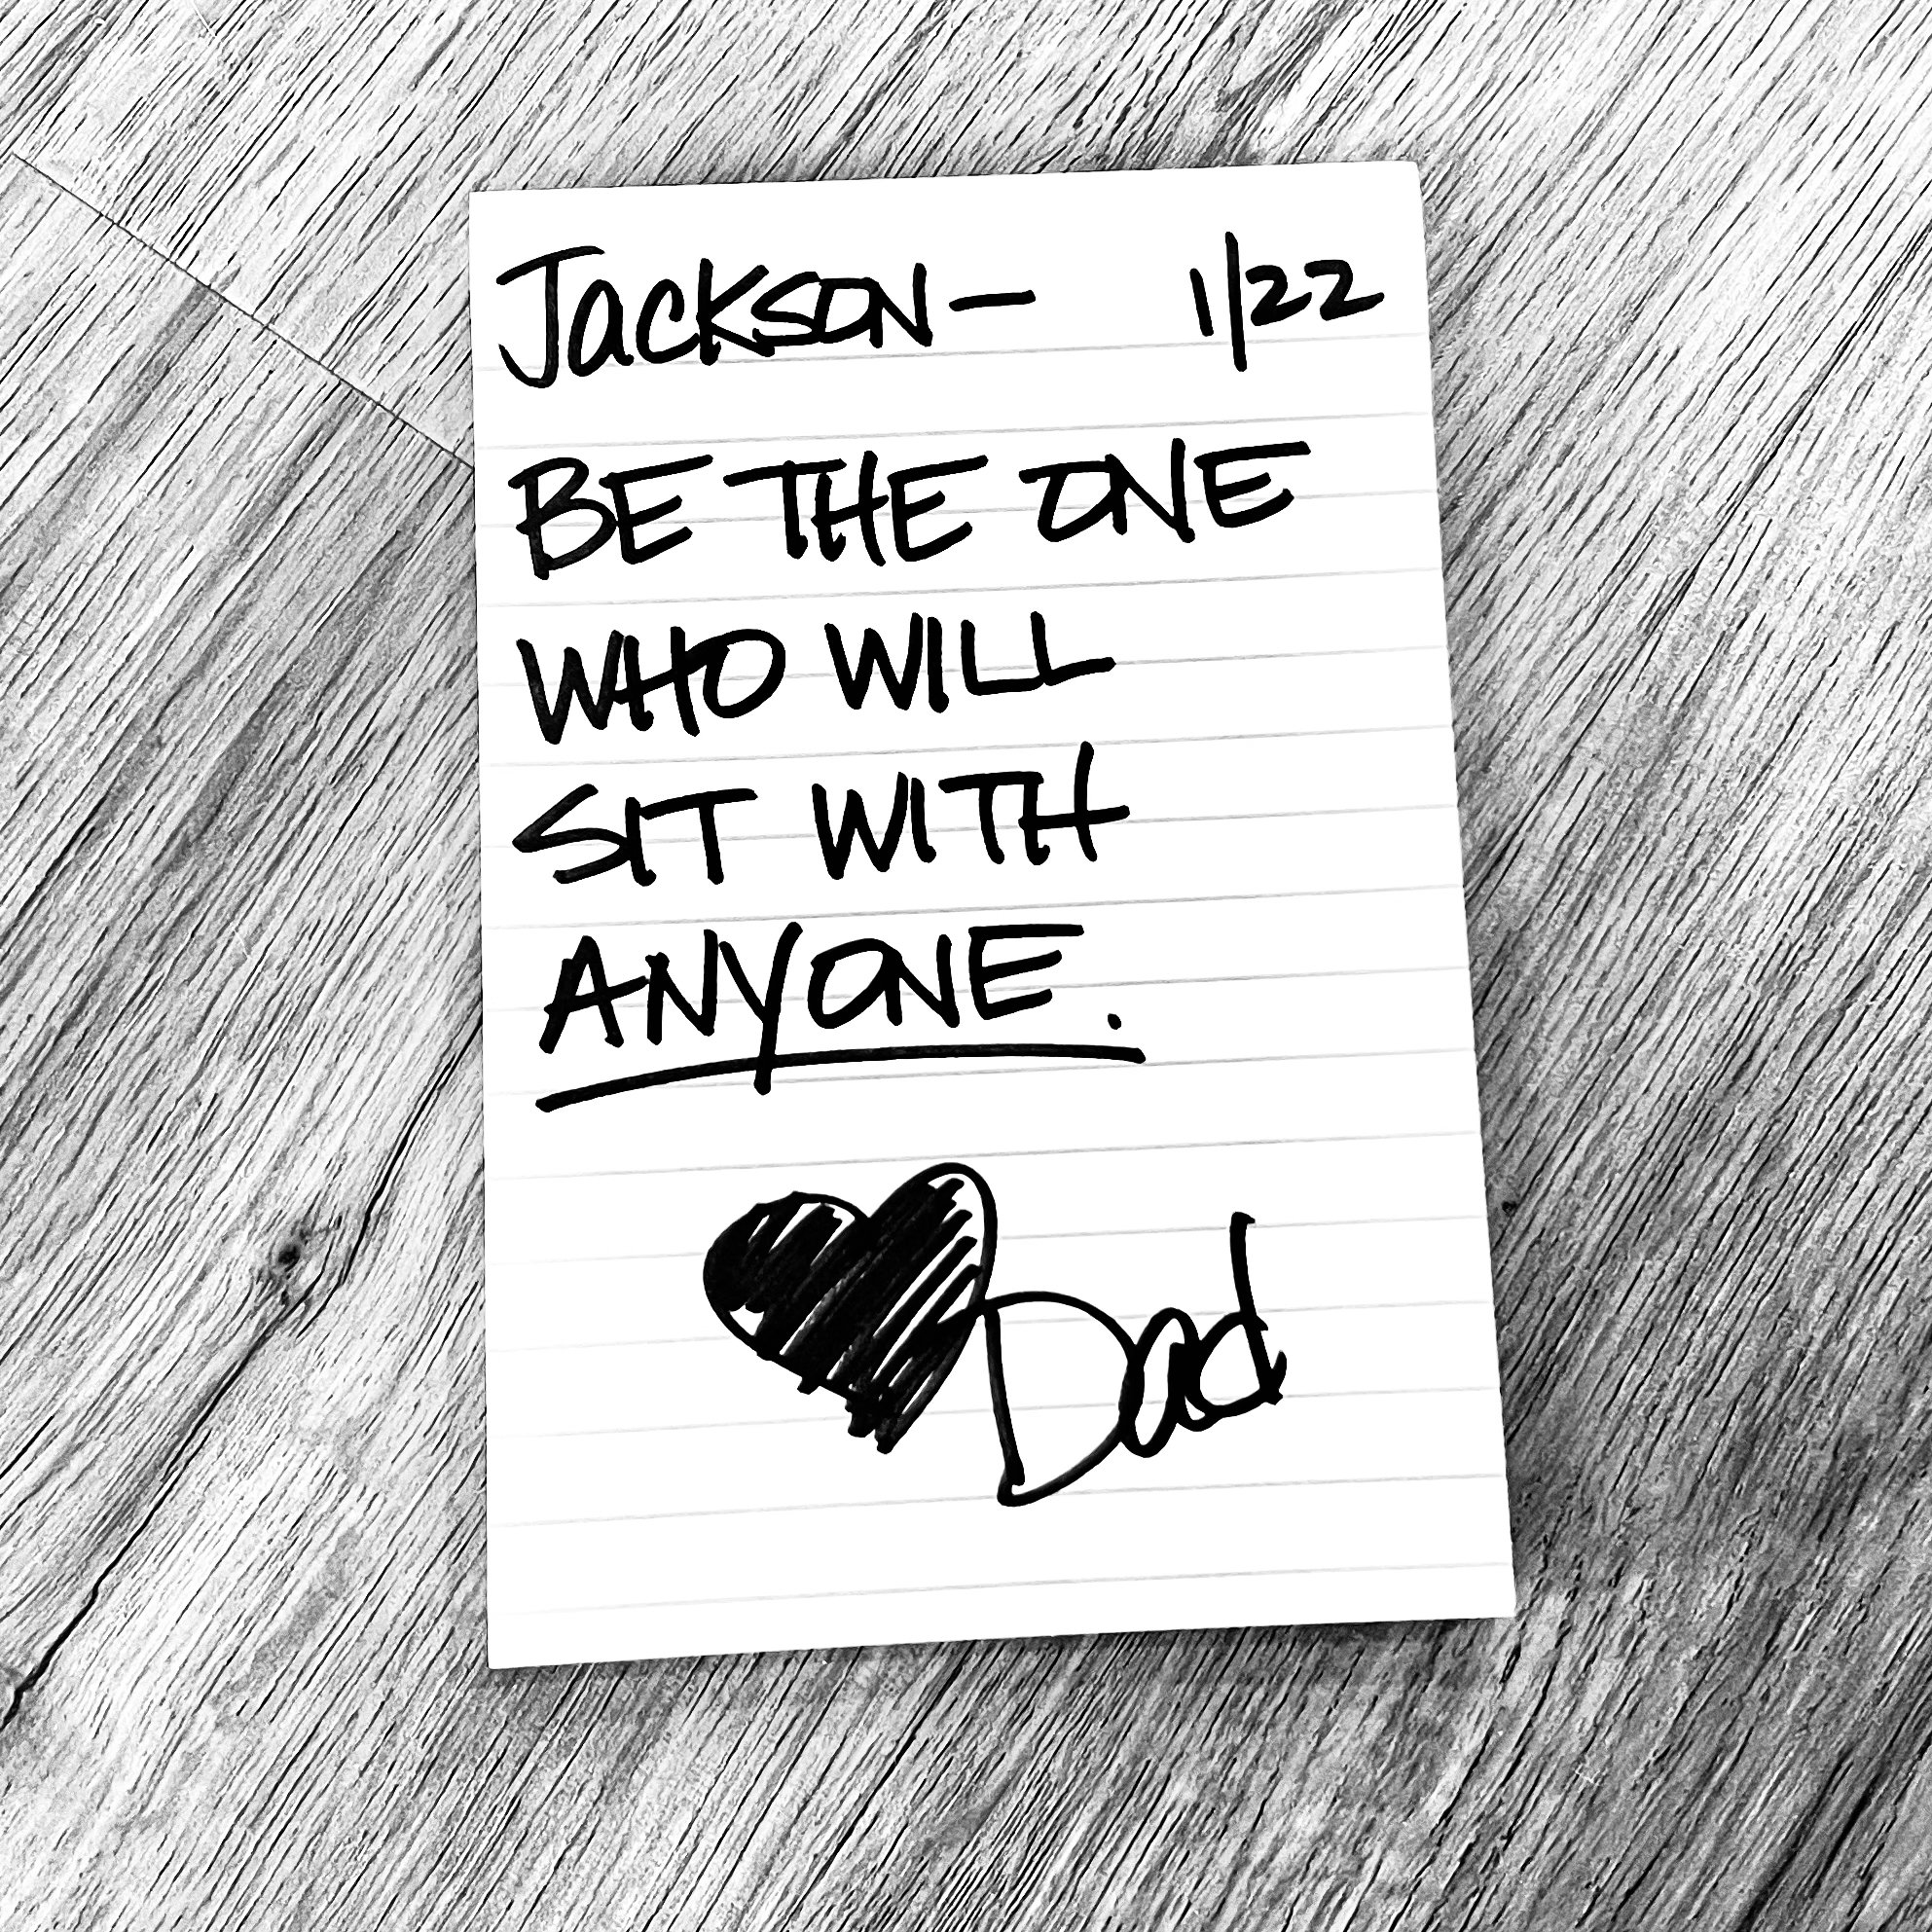 Jackson— 1/22
BE THE ONE
WHO WILL
SIT WITH
ANYONE.
Dad